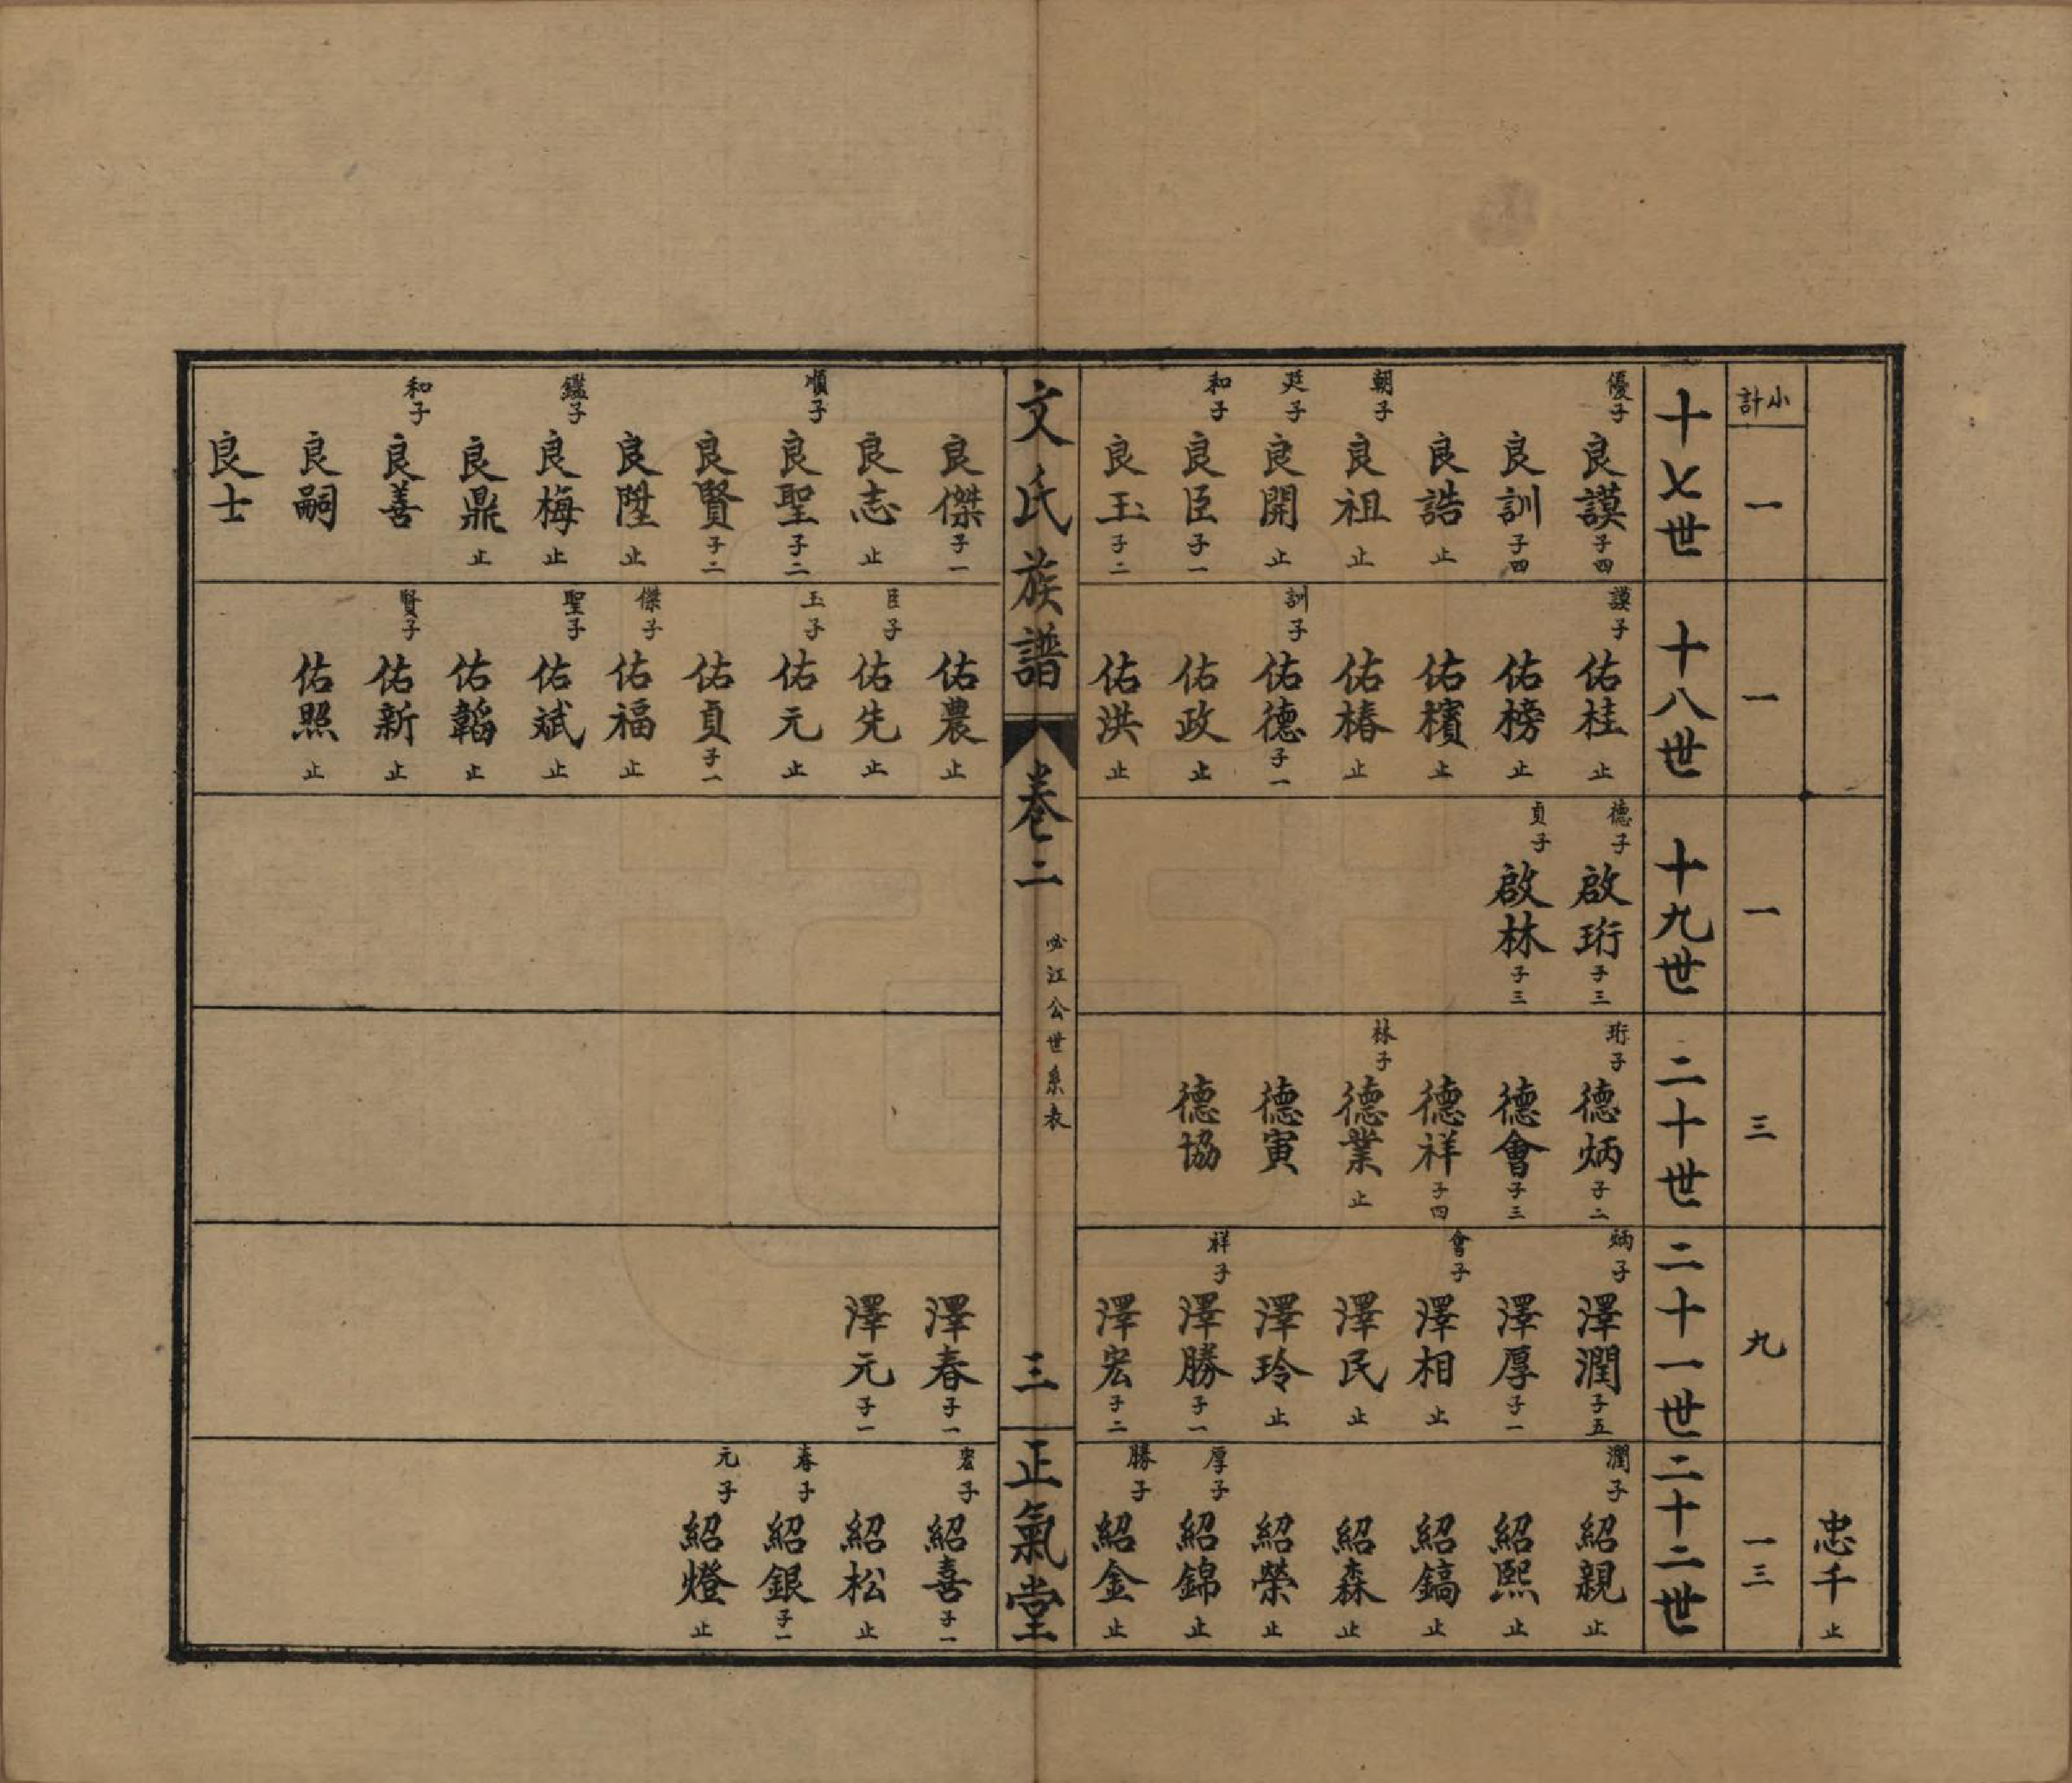 忠千 止
小計
一
一
一
三
九
一三
十七世
優子 良謨 子四
良訓 子四
良誥 止
朝子 良祖 止
廷子 良開 止
和子 良臣 子一
良玉 子二
十八世
謨子 佑桂 止
佑榜 止
佑檳 止
佑椿 止
訓子 佑德 子一
佑政 止
佑洪 止
十九世
德子 啟珩 子三
貞子 啟林 子三
二十世
珩子 德炳 子二
德會 子三
德祥 子四
林子 德業 止
德寅
德協
二十一世
炳子 澤潤 子五
澤厚 子一
會子 澤相 止
澤民 止
澤玲 止
祥子 澤勝 子一
澤宏 子二
二十二世
潤子 紹親 止
紹熙 止
紹鎬 止
紹森 止
紹榮 止
厚子 紹錦 止
勝子 紹金 止
文氏族譜
卷二
必江公世系表
三
正氣堂
良傑 子一
良志 止
順子 良聖 子二
良賢 子二
良陞 止
鑑子 良梅 止
良鼎 止
和子 良善
良嗣
良士
佑農 止
臣子 佑先 止
玉子 佑元 止
佑貞 子一
傑子 佑福 止
聖子 佑斌 止
佑韜 止
賢子 佑新 止
佑照 止
澤春 子一
澤元 子一
宏子 紹喜 子一
紹松 止
春子 紹銀 子一
元子 紹燈 止